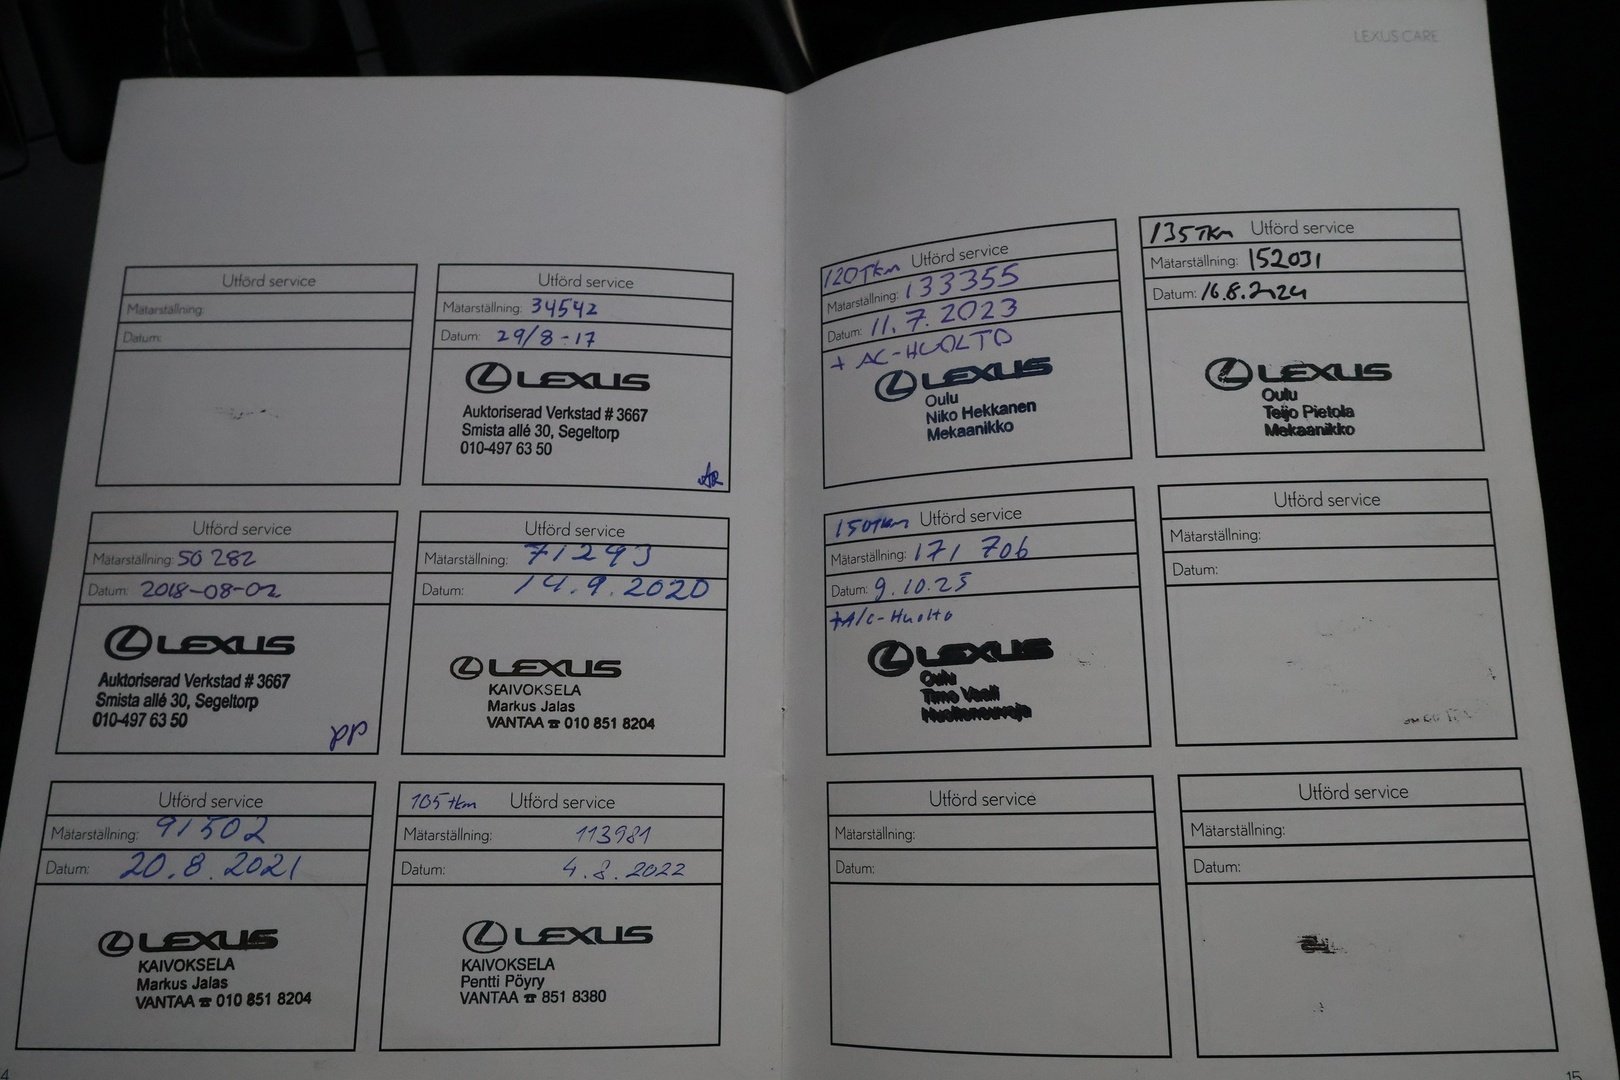 LEXUS CARE
Utförd service
Mätarställning:
Datum:
Utförd service
Mätarställning: 34542
Datum: 29/8-17
LEXUS
Auktoriserad Verkstad # 3667
Smista allé 30, Segeltorp
010-497 63 50
AR
Utförd service
Mätarställning: 50 282
Datum: 2018-08-02
LEXUS
Auktoriserad Verkstad # 3667
Smista allé 30, Segeltorp
010-497 63 50
PP
Utförd service
Mätarställning: 71293
Datum: 14.9.2020
LEXUS
KAIVOKSELA
Markus Jalas
VANTAA ☎ 010 851 8204
Utförd service
Mätarställning: 91502
Datum: 20.8.2021
LEXUS
KAIVOKSELA
Markus Jalas
VANTAA ☎ 010 851 8204
105 tkm Utförd service
Mätarställning: 113981
Datum: 4.8.2022
LEXUS
KAIVOKSELA
Pentti Pöyry
VANTAA ☎ 851 8380
4
120Tkm Utförd service
Mätarställning: 133355
Datum: 11.7.2023
+ AC-HUOLTO
LEXUS
Oulu
Niko Hekkanen
Mekaanikko
135Tkm Utförd service
Mätarställning: 152031
Datum: 16.8.2024
LEXUS
Oulu
Teijo Pietola
Mekaanikko
150Tkm Utförd service
Mätarställning: 171 706
Datum: 9.10.25
+A/C-Huolto
LEXUS
Oulu
Timo Vaali
Huoltoneuvoja
Utförd service
Mätarställning:
Datum:
Utförd service
Mätarställning:
Datum:
Utförd service
Mätarställning:
Datum:
15